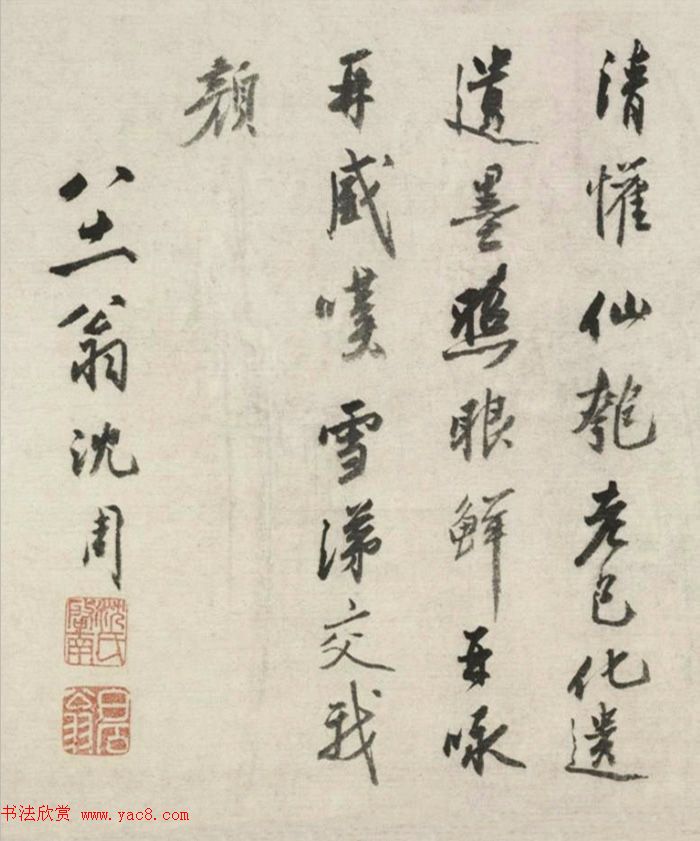 清懽仙匏老已化遺
遺墨照眼鮮再咏
再感嘆雪涕交我
顏
八十二翁沈周
沈氏啟南
白石翁
书法欣赏 www.yac8.com